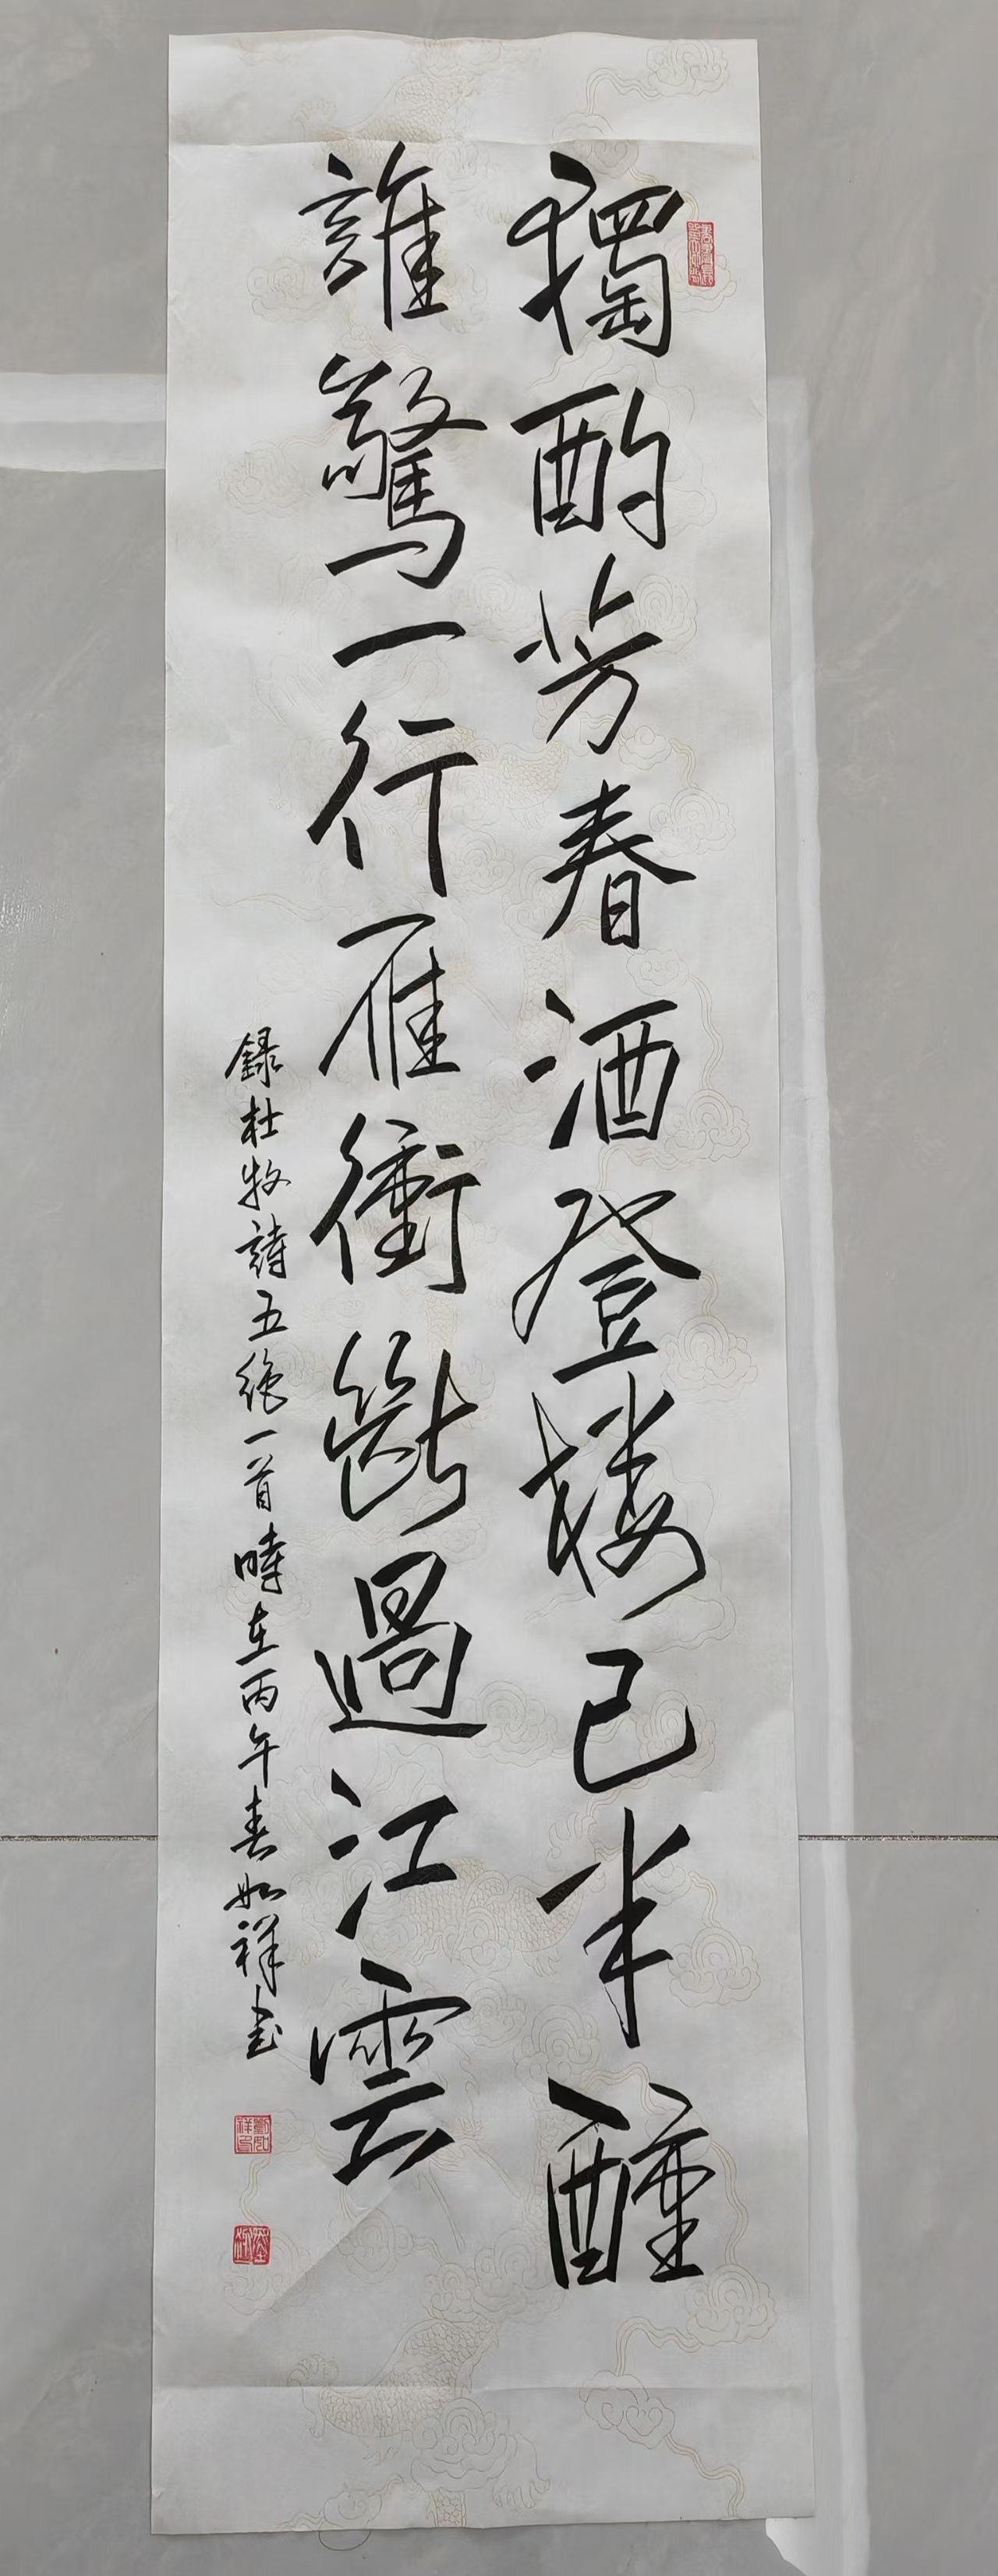 獨酌芳春酒登楼已半醺
誰驚一行雁衝斷過江雲
録杜牧詩五絶一首時在丙午春如祥书